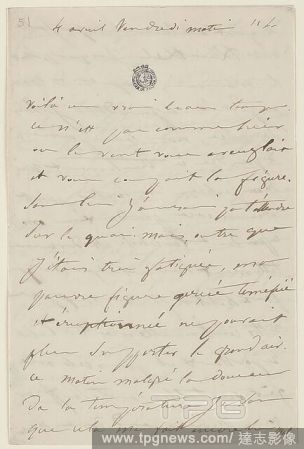 51
4 avril Vendredi matin 11 h
Voilà un vrai beau temps.
ce n'est pas comme hier
où le vent vous aveuglait
et vous coupait la figure.
sur le quai mais, outre que
j'étais très fatiguée, ma
pauvre figure gercée tuméfiée
et éruptionnée ne pouvait
plus supporter le grand air.
ce matin malgré la douceur
de la température je
que cela me fait
TPG
www.tpgnews.com / 達志影像